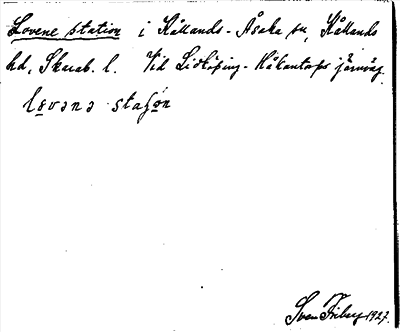 Lovene station i Kållands-Åsaka sn, Kållands
hd, Skarab. l. Vid Lidköping-Håkantorps järnväg.
lovənə staʃon
Sven Friberg 1927.